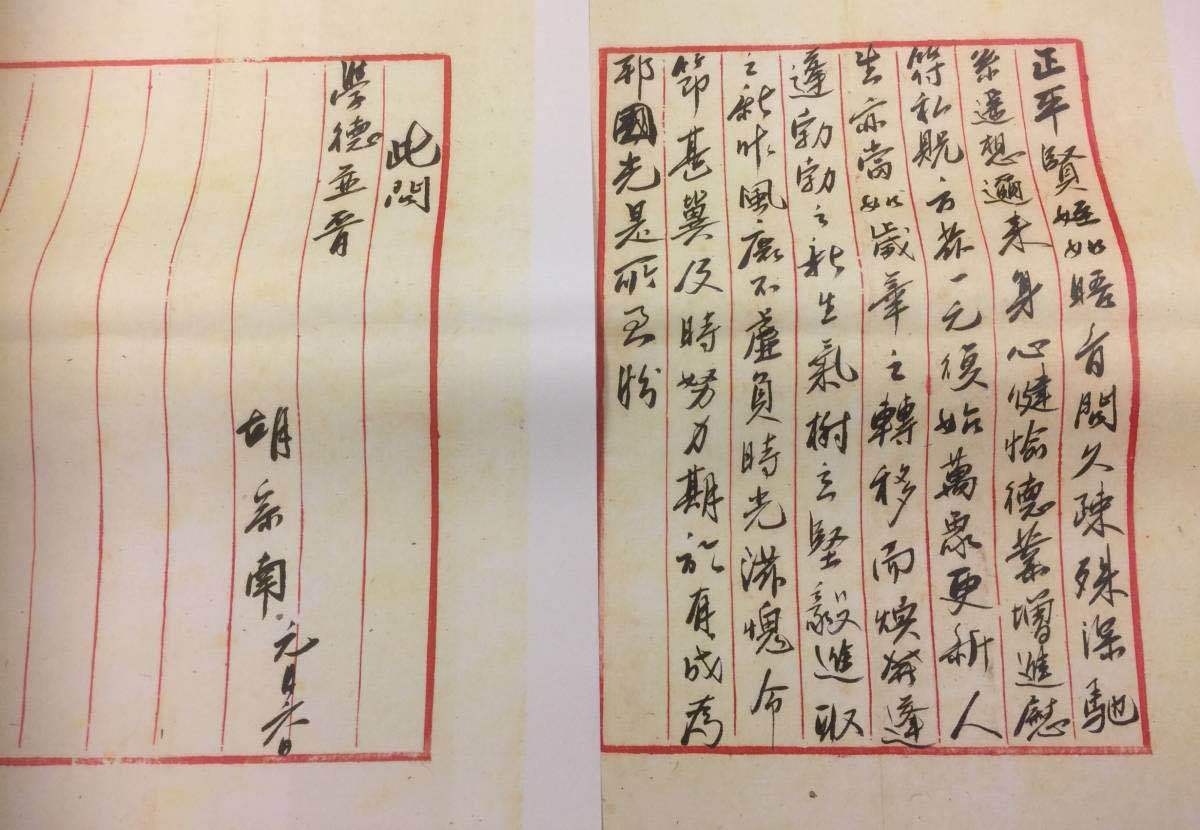 正平賢姪如晤音問久疎殊深馳
系遥想邇来身心健愉德業增進慰
符私貺方茲一元復始萬象更新人
生亦當如歲華之轉移而煥發蓬
蓬勃勃之新生氣樹立堅毅進取
之新作風庶不虛負時光滋愧令
節甚冀及時努力期於有成為
邦國光是所至盼
此問
學德並晉
胡宗南 元月六日